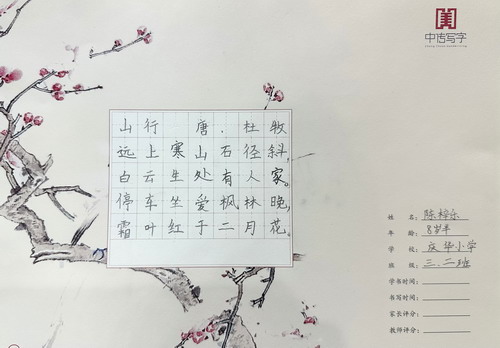 中传写字
山行 唐·杜牧
远上寒山石径斜,
白云生处有人家。
停车坐爱枫林晚,
霜叶红于二月花。
姓 名: 陈梓乐
年 龄: 8岁半
学 校: 庆华小学
班 级: 三.二班
学书时间:
书写时间:
家长评分:
教师评分: